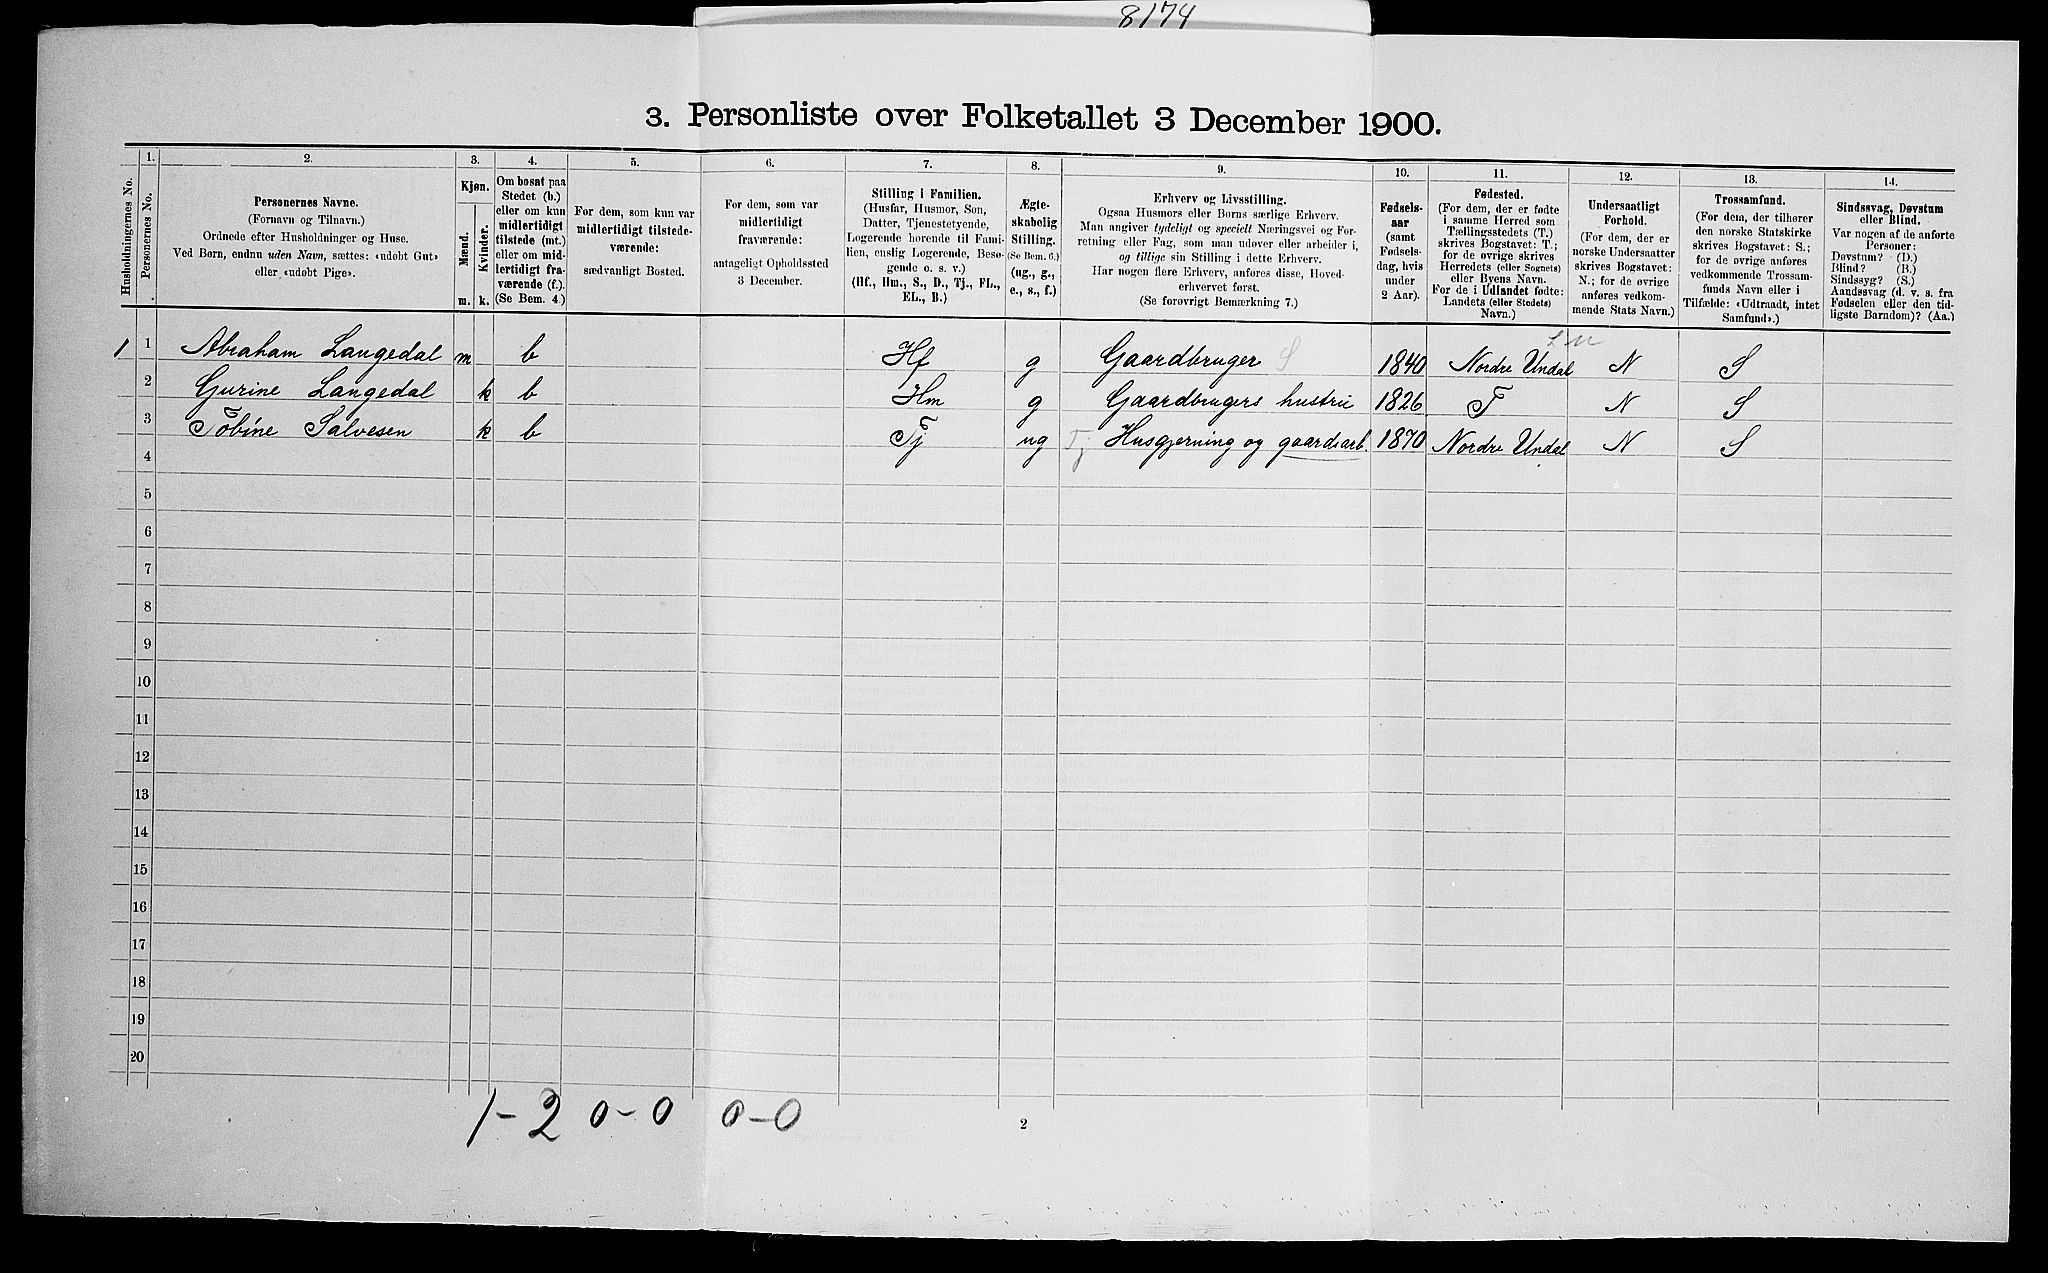 8174
3. Personliste over Folketallet 3 December 1900.
Husholdningernes No.
1.
Personernes No.
2.
Personernes Navne.
(Fornavn og Tilnavn.)
Ordnede efter Husholdninger og Huse.
Ved Børn, endnu uden Navn, sættes: «udøbt Gut»
eller «udøbt Pige».
3.
Kjøn.
Mænd.
Kvinder.
m. k.
4.
Om bosat paa
Stedet (b.)
eller om kun
midlertidigt
tilstede (mt.)
eller om mid-
lertidigt fra-
værende (f.).
(Se Bem. 4.)
5.
For dem, som kun var
midlertidigt tilstede-
værende:
sædvanligt Bosted.
6.
For dem, som var
midlertidigt
fraværende:
antageligt Opholdssted
3 December.
7.
Stilling i Familien.
(Husfar, Husmor, Søn,
Datter, Tjenestetyende,
Logerende hørende til Fami-
lien, enslig Logerende, Besø-
gende o. s. v.)
(Hf., Hm., S., D., Tj., FL.,
EL., B.)
8.
Ægte-
skabelig
Stilling.
(Se Bem. 6.)
(ug., g.,
e., s., f.)
9.
Erhverv og Livsstilling.
Ogsaa Husmors eller Børns særlige Erhverv.
Man angiver tydeligt og specielt Næringsvei og For-
retning eller Fag, som man udøver eller arbeider i,
og tillige sin Stilling i dette Erhverv.
Har nogen flere Erhverv, anføres disse, Hoved-
erhvervet først.
(Se forøvrigt Bemærkning 7.)
10.
Fødsels-
aar
(samt
Fødsels-
dag, hvis
under
2 Aar).
11.
Fødested.
(For dem, der er fødte
i samme Herred som
Tællingsstedets (T.)
skrives Bogstavet: T.;
for de øvrige skrives
Herredets (eller Sognets)
eller Byens Navn.
For de i Udlandet fødte:
Landets (eller Stedets)
Navn.)
12.
Undersaatligt
Forhold.
(For dem, der er
norske Undersaatter
skrives Bogstavet:
N.; for de øvrige
anføres vedkom-
mende Stats Navn.)
13.
Trossamfund.
(For dem, der tilhører
den norske Statskirke
skrives Bogstavet: S.;
for de øvrige anføres
vedkommende Trossam-
funds Navn eller i
Tilfælde: «Udtraadt, intet
Samfund».)
14.
Sindssvag, Døvstum
eller Blind.
Var nogen af de anførte
Personer:
Døvstum? (D.)
Blind? (B.)
Sindssyg? (S.)
Aandssvag (d. v. s. fra
Fødselen eller den tid-
ligste Barndom)? (Aa.)
1 1 Abraham Langedal m b Hf g Gaardbruger S 1840 Nordre Undal N S
2 Gurine Langedal k b Hm g Gaardbrugers hustru 1826 T N S
3 Tobine Salvesen k b Tj ug Tj Husgjerning og gaardsarb. 1870 Nordre Undal N S
4
5
6
7
8
9
10
11
12
13
14
15
16
17
18
19
20
1-2 0-0 0-0
2